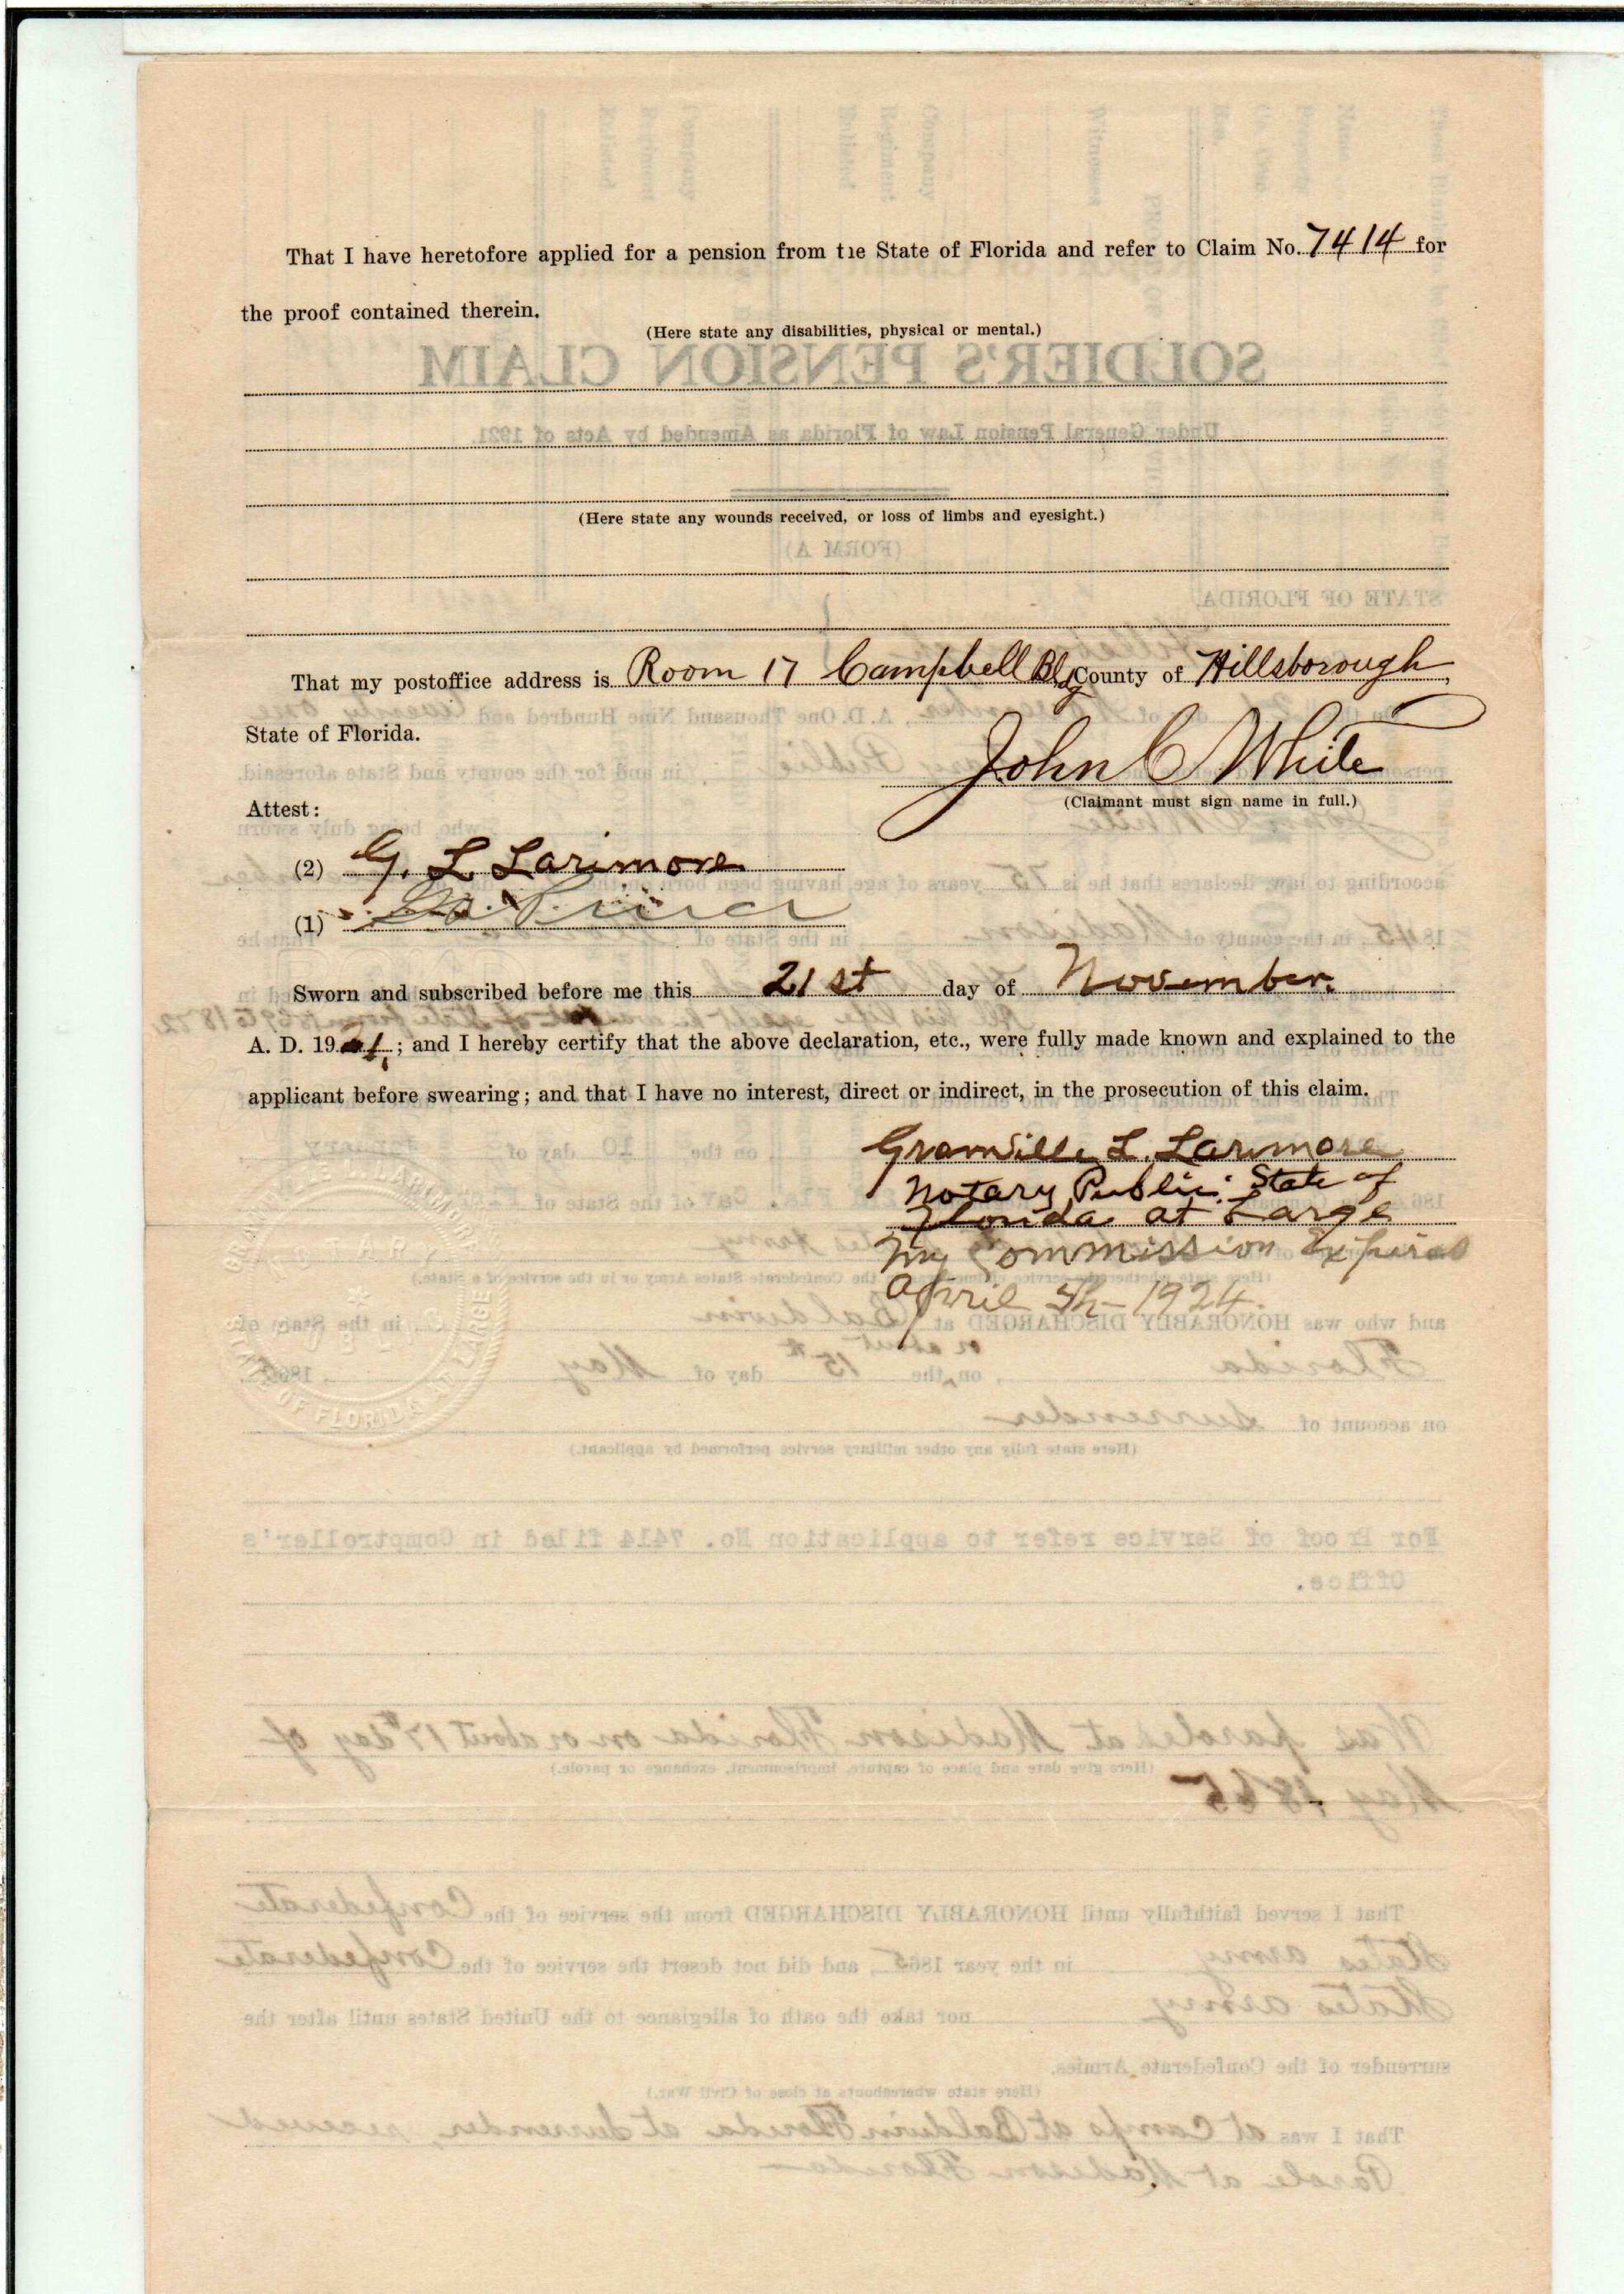 That I have heretofore applied for a pension from the State of Florida and refer to Claim No. 7414 for
the proof contained therein.
(Here state any disabilities, physical or mental.)
(Here state any wounds received, or loss of limbs and eyesight.)
That my postoffice address is Room 17 Campbell Bldg County of Hillsborough
State of Florida.
John C White
(Claimant must sign name in full.)
Attest:
(2) G. L Larimore
(1)
Sworn and subscribed before me this 21st day of November.
A. D. 1921.; and I hereby certify that the above declaration, etc., were fully made known and explained to the
applicant before swearing; and that I have no interest, direct or indirect, in the prosecution of this claim.
Granville L. Larimore
Notary Public. State of
Florida at Large
My Commission Expires
April 5th-1924.